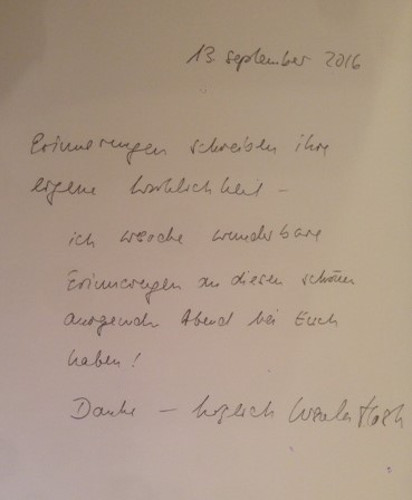 13. september 2016
Erinnerungen schreiben ihre
eigene Wirklichkeit –
ich werde wunderbare
Erinnerungen an diesen schönen
Abend bei Euch
haben!
Danke – herzlich